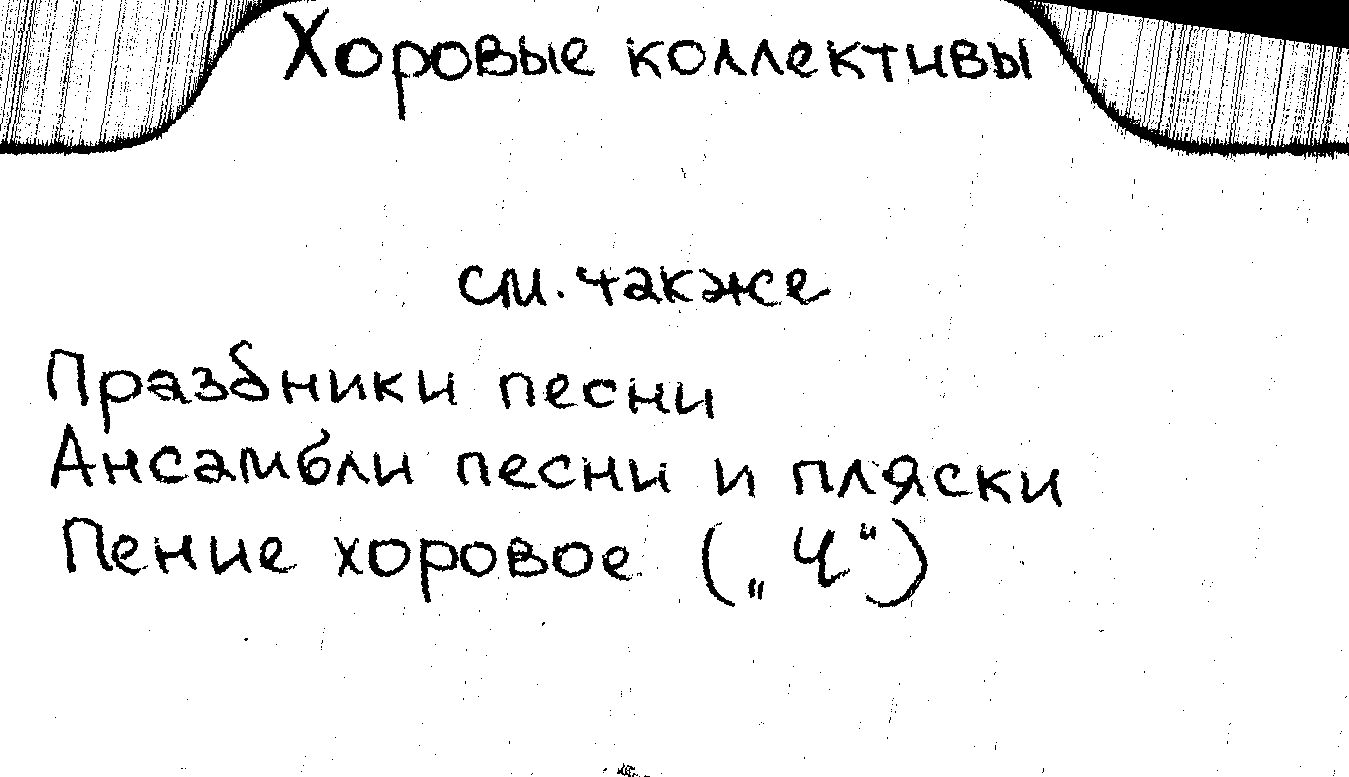 Хоровые коллективы
см. также
Праздники песни
Ансамбли песни и пляски
Пение хоровое („Ч“)